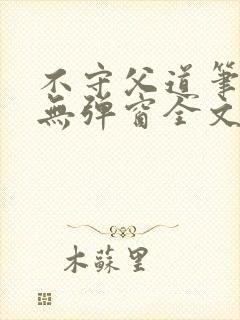 不守父道筆
無彈窗全文
木蘇里